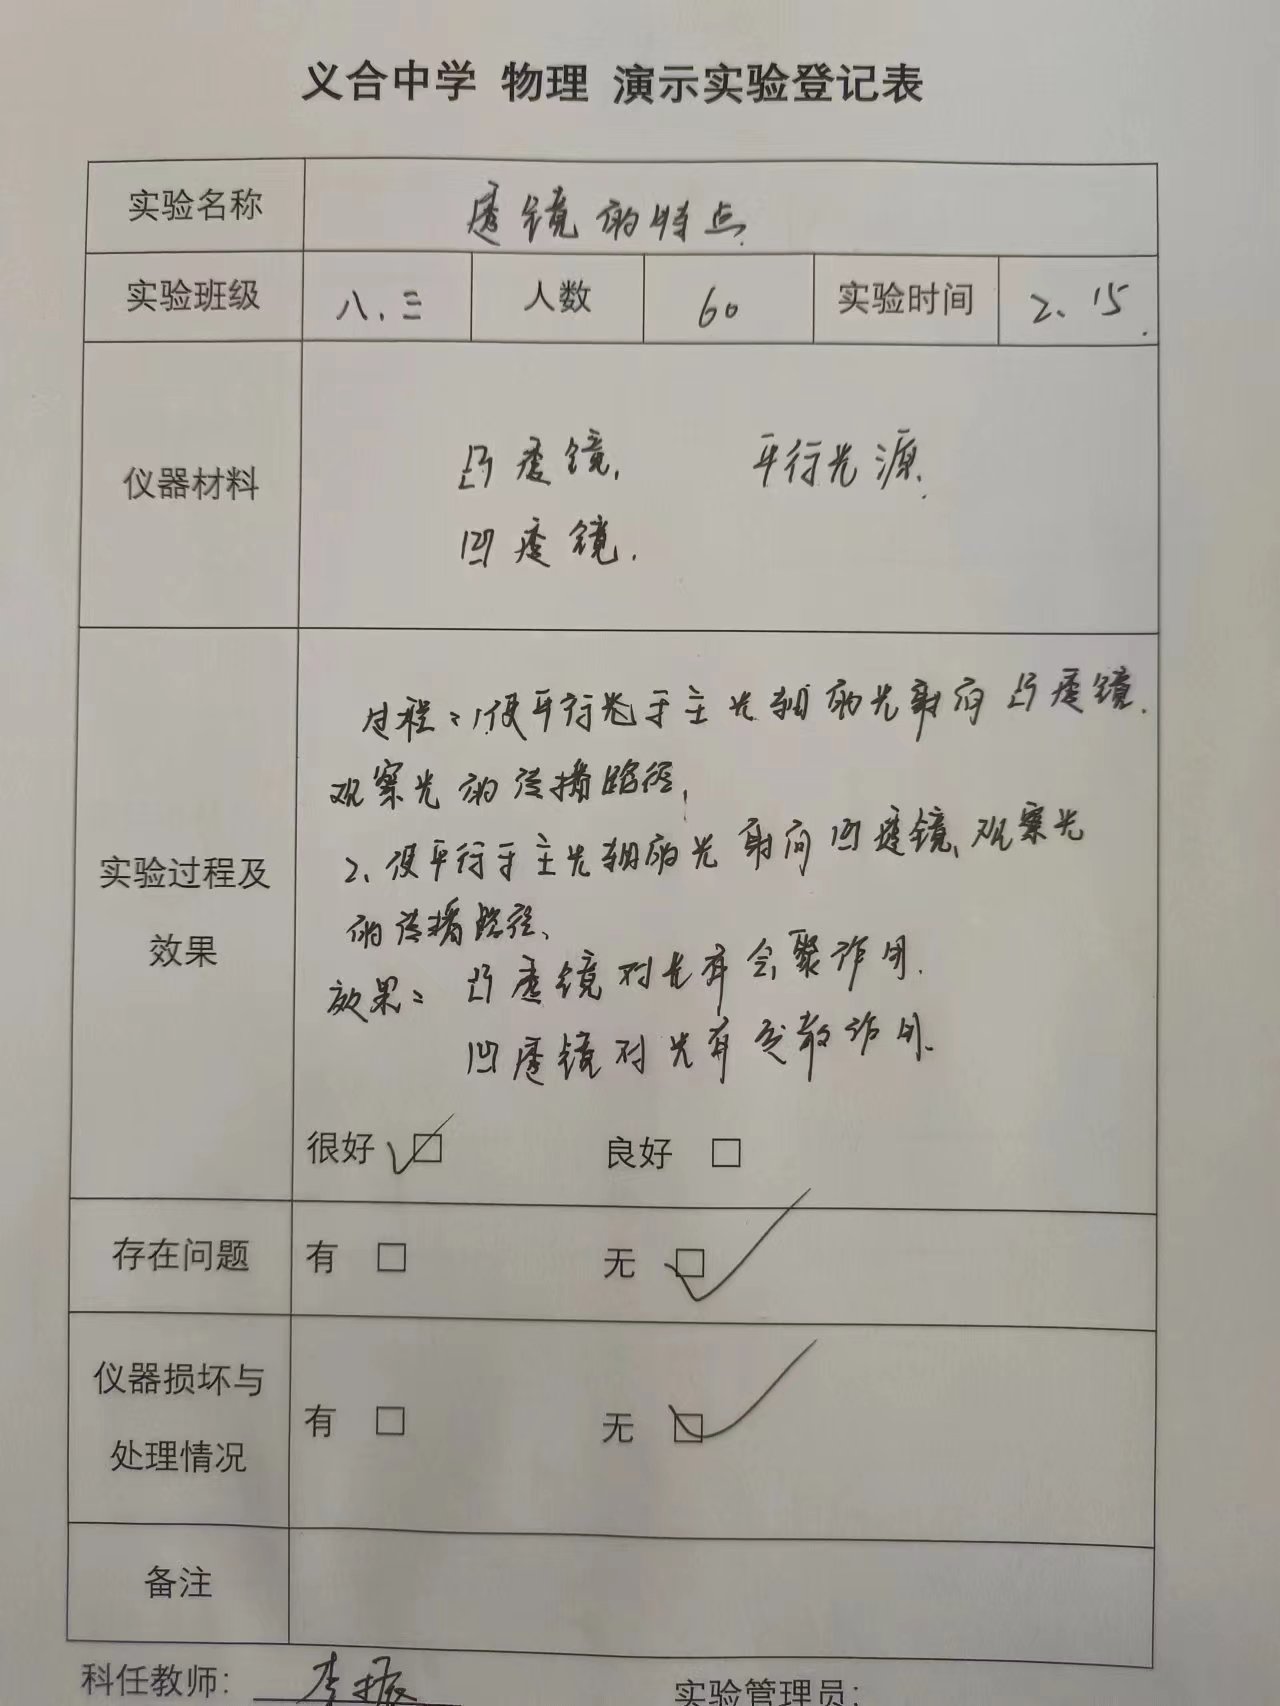 义合中学 物理 演示实验登记表
实验名称 透镜的特点
实验班级 八.三 人数 60 实验时间 2、15.
凸透镜. 平行光源.
仪器材料
凹透镜.
过程:1、使平行光于主光轴的光射向凸透镜.
观察光的传播路径,
2、使平行于主光轴的光射向凹透镜、观察光
的传播路径、
实验过程及
效果
效果: 凸透镜对光有会聚作用.
凹透镜对光有发散作用.
很好 ☑ 良好 □
存在问题 有 □ 无 ☑
仪器损坏与
处理情况
有 □ 无 ☑
备注
科任教师: 李振
实验管理员: